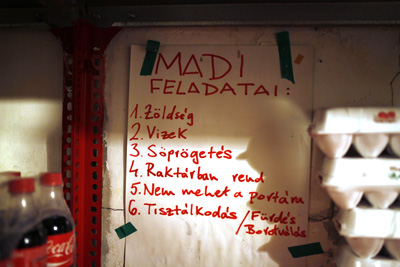 MADI
FELADATAI:
1. Zöldség
2. Vizek
3. Söprögetés
4. Raktárban rend
5. Nem mehet a portára
6. Tisztálkodás / Fürdés
Borotválás
Coca-Cola